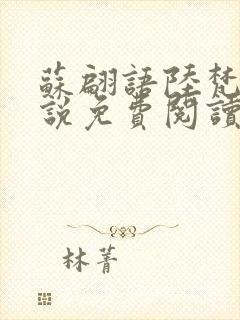 蘇翩語陸梵
說免費閱讀
林菁